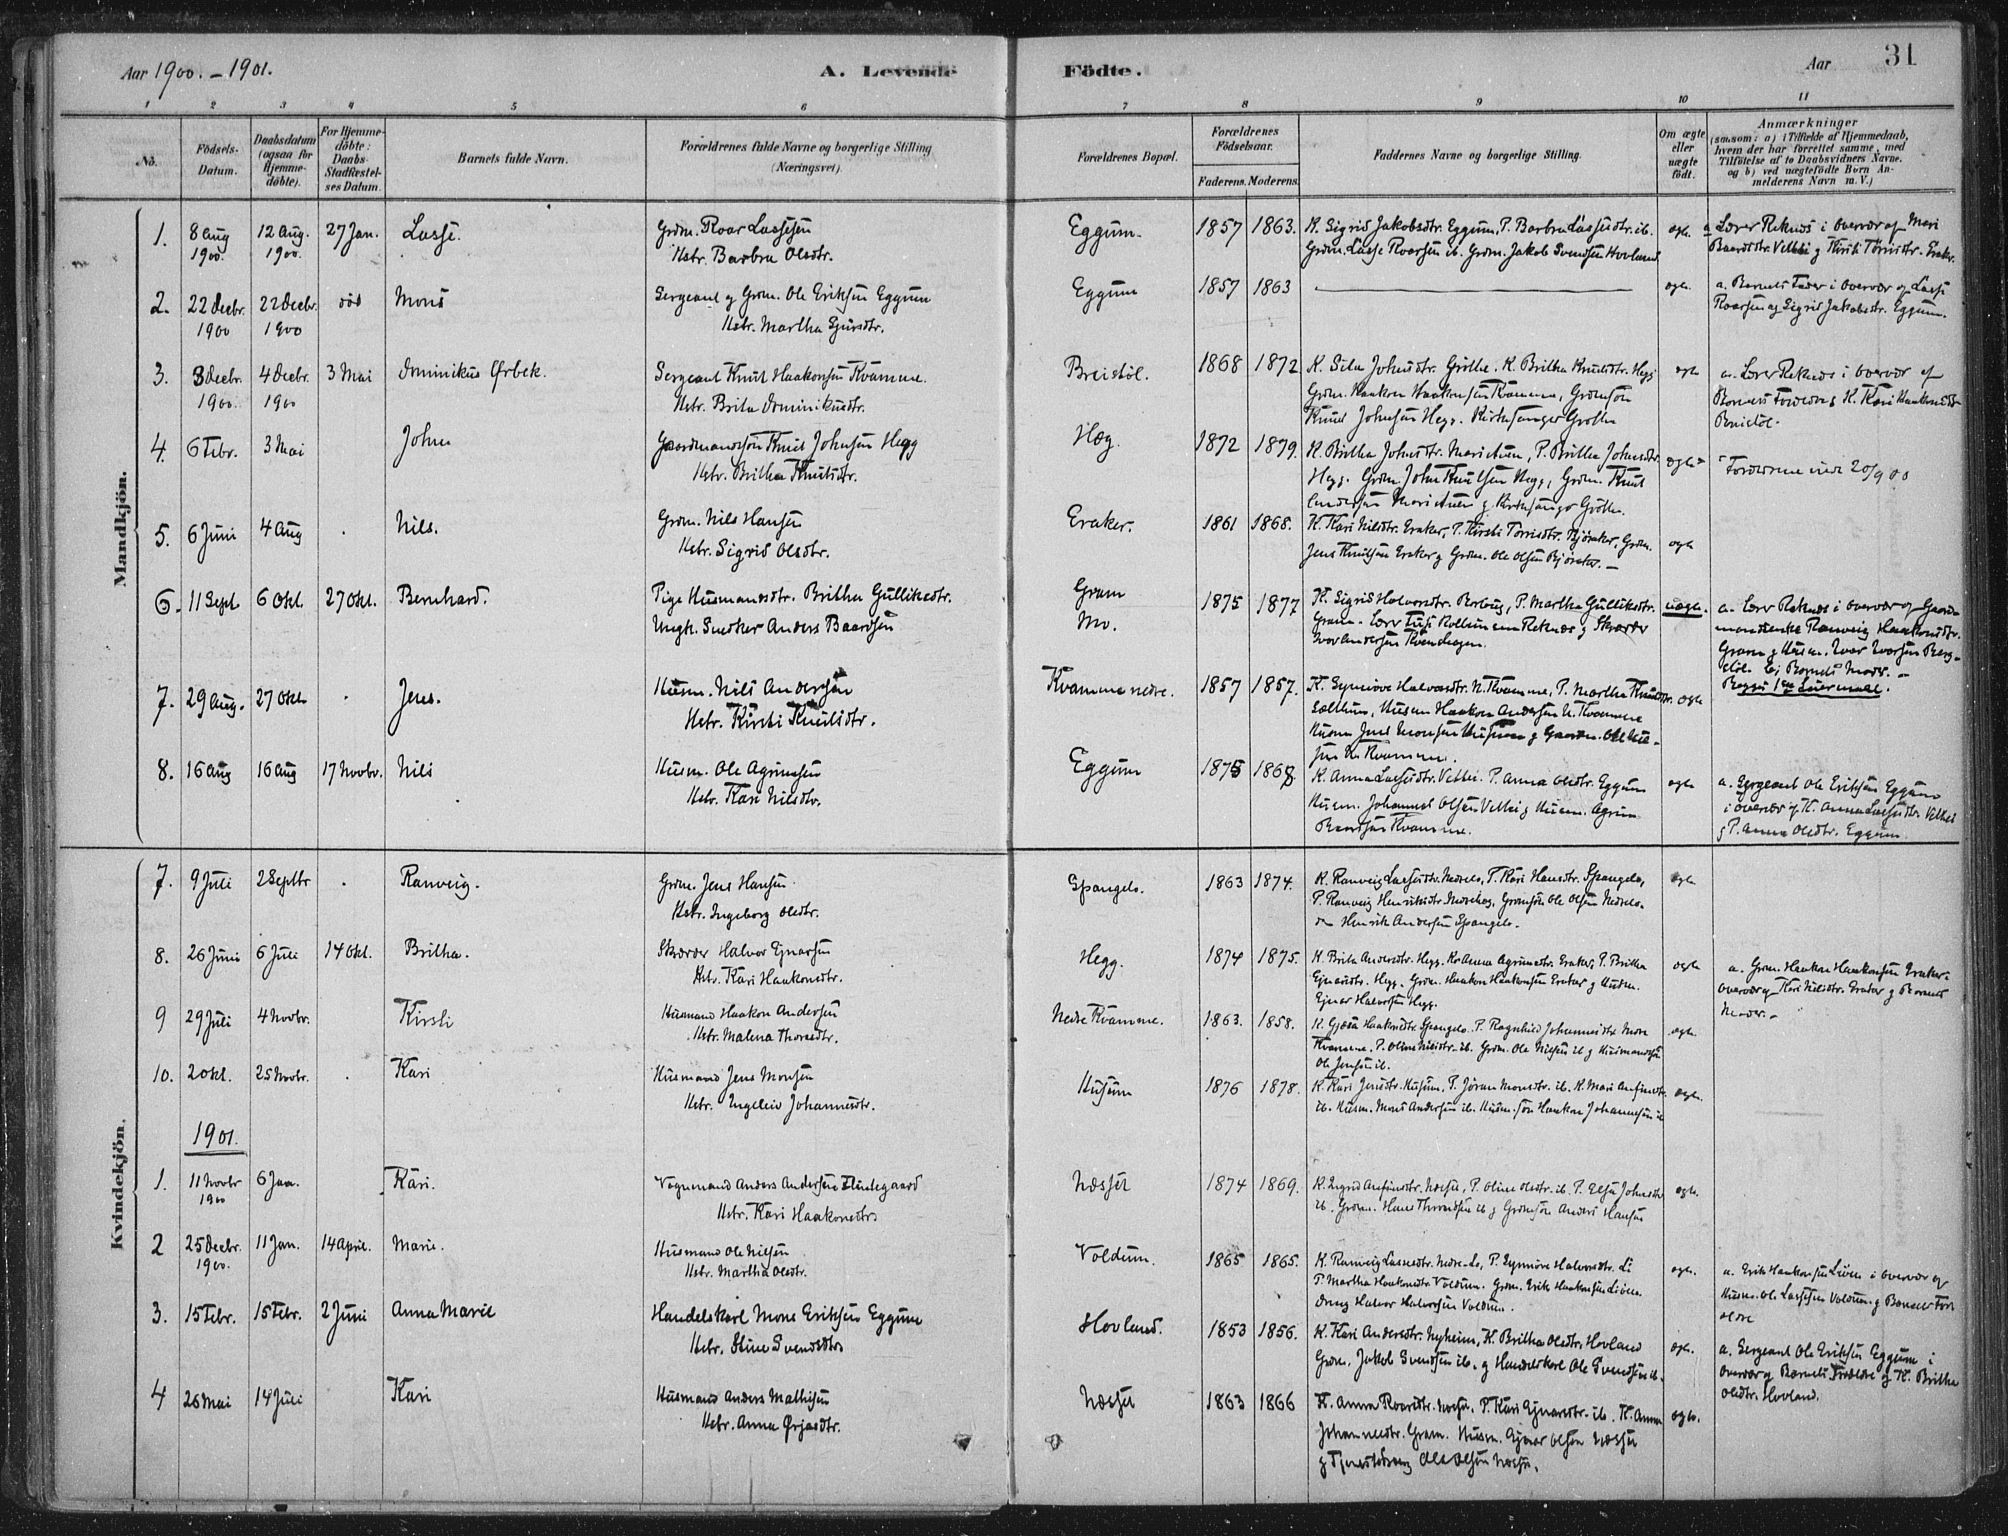 Aar 1900.-1901.
A. Levende Födte.
Aar
31
1 2 3 4 5 6 7 8 9 10 11
No.
Födsels-Datum.
Daabsdatum (ogsaa for Hjemme-döbte).
For Hjemme-döbte: Daabs-Stadfæstel-ses Datum.
Barnets fulde Navn.
Forældrenes fulde Navne og borgerlige Stilling (Næringsvei).
Forældrenes Bopæl.
Forældrenes Födselsaar.
Faderens. Moderens.
Faddernes Navne og borgerlige Stilling.
Om ægte eller uægte födt.
Anmærkninger
(saasom: a) i Tilfælde af Hjemmedaab,
hvem der har forrettet samme, med
Tilföielse af to Daabsvidners Navne.
og b) ved uægtefödte Börn An-
melderens Navn m. V.)
Mandkjön.
1. 8 Aug 1900. 12 Aug. 1900. 27 Jan. Lasse. Grdm. Roar Lassesen
Hstr. Barbra Olsdtr.
Eggum. 1857 1863. K. Sigrid Jakobsdtr. Eggum, P. Barbra Lassesdtr. ib.
Grdm. Lasse Roarsen ib. Grdm. Jakob Svendsen Hovland. egte.
a Lærer Reknes i overvær af Mari
Baardsdtr. Vetti og Kirsti Torrisdtr. Eraker.
2. 22 Decbr. 1900 22 Decbr. 1900 död Mons Sergeant og Grdm. Ole Eriksen Eggum
Hstr. Martha Gjursdtr.
Eggum 1857 1863 egte. a. Barnets Fader i overvær af Lasse
Roarsen og Sigrid Jakobsdtr. Eggum.
3. 3 Decbr. 1900. 4 Decbr. 1900 3 Mai Dominikus Ørbek. Sergeant Knut Haakonsen Kvamme.
Hstr. Brita Dominikusdtr.
Breistöl. 1868 1872 K. Sila Johnsdtr. Grøthe. K. Britha Knutsdtr. Hegg
Grdm. Haakon Haakonsen Kvamme, Grdmsön
Knud Johnsen Hegg. Kirkesanger Grøthe egte
a. Lærer Reknes i overvær af
Barnets Forældre K. Kari Haakonsdtr
Breistöl.
4. 6 Febr. 3 Mai John Gaardmandssön Knut Johnsen Hegg
Hstr. Britha Knutsdtr.
Hæg. 1872 1879. K. Britha Johnsdtr. , P. Britha Johnsdtr.
Hegg. Grdm. John Knutsen Hegg, Grdm. Knut
og Kirkesanger Grøthe. egte
Forældrene viede 20/9 00
5. 6 Juni 4 Aug . Nils. Grdm. Nils Hansen
Hstr. Sigrid Olsdtr.
Eraker. 1861 1868. K. Kari Nilsdtr. Eraker, P. Kirsti Torrisdtr. Bjøraker, Grdm.
Jens Knutsen Eraker og Grdm. Ole Olsen Bjøraker. egte
6. 11 Sept. 6 Okt. 27 Okt. Bernhard. Pige Husmandsdtr. Britha Gulliksdtr.
Ungk. Snedker Anders Baardsen
Gram
Mo. 1875 1877 K. Sigrid Halvorsdtr. , P. Martha Gulliksdtr.
Gram. Lærer Reknes og Skræder
uægte. a. Lærer Reknes i overvær af Gaard-
mandsenke Ranveig Haakonsdtr.
Gram og Husm. Ivar Ivarsen Berg-
stöl. Barnets Moder.
7. 29 Aug. 27 Okt . Jens. Husm. Nils Andersen
Hstr. Kirsti Knutsdtr.
Kvamme nedre. 1857 1857. K. Synnöve Halvorsdtr. N. Kvamme, P. Martha Knutsdtr.
, Husm Haakon Andersen N. Kvamme
Husm Jens Monsen Husum og Gaardm. Ole Nil-
sen N. Kvamme. egte
8. 16 Aug 16 Aug 17 Novbr. Nils Husm. Ole Agrimsen
Hstr. Kari Nilsdtr.
Eggum 1875 1868 K. Anna Lassesdtr. Vetti. P. Anna Olsdtr. Eggum
Husm. Johannes Olsen Vetti og Husm. Agrim
Baardsen Kvamme. egte
a. Sergeant Ole Eriksen Eggum
i overvær af K. Anna Lassesdtr. Vetti
og P. Anna Olsdtr. Eggum
Kvindekjön.
7. 9 Juli 2 Septbr . Ranveig. Grdm. Jens Hansen
Hstr. Ingeborg Olsdtr.
Spangelo. 1863 1874. K. Ranveig Lassesdtr. Nedrelo, P. Kari Hansdtr. Spangelo,
P. Ranveig Henriksdtr. , Grdmsön Ole Olsen Nedrelo
Henrik Andersen Spangelo. egte
8. 26 Juni 6 Juli 14 Okt. Britha. Skræder Halvor Ejnarsen
Hstr. Kari Haakonsdtr.
Hegg. 1874 1875. K. Brita Andersdtr. Hegg. K. Anna Agrimsdtr. Eraker, P. Britha
Ejnarsdtr. Hegg, Grdm. Haakon Haakonsen Eraker og Husm.
Ejnar Halvorsen Hegg. egte
a. Grdm. Haakon Haakonsen Eraker i
overvær af Kari Nilsdtr. Eraker og Barnets
Moder.
9 29 Juli 4 Novbr. Kirsti Husmand Haakon Andersen
Hstr. Malena Thorsdtr.
Nedre Kvamme. 1863. 1858. K. Gjøa Haakonsdtr. Spangelo. P. Ragnhild Johannesdtr.
Kvamme, P. Oline Nilsdtr. ib. Grdm. Ole Nilsen ib og Husmandssön
Ole Jensen ib. egte
10. 2 Okt. 25 Novbr. . Kari Husmand Jens Monsen
Hstr. Ingeleiv Johannesdtr.
Husum 1876 1878. K. Kari Jensdtr. Husum, P. Jöran Monsdtr. ib. K. Mari Anfinsdtr.
ib. Husm. Mons Andersen ib. Husm. sön Haakon Johannesen ib egte.
1901.
1. 11 Novbr 1900 6 Jan. Kari. Vognmand Anders Andersen Lindegaard
Hstr. Kari Haakonsdtr
Næsset 1874 1869. K. Ingrid Anfinsdtr. Næsse, P. Oline Olsdtr. ib. P. Elsa Johnsdtr
ib. Grdm. Hans Throndsen ib og Grdmsön Anders Hansen egte.
2 25 Decbr. 1900. 11 Jan. 14 April. Marie. Husmand Ole Nilsen
Hstr. Martha Olsdtr.
Voldum. 1865 1865. K. Ranveig Lassesdtr. Nedre-Lo, P. Synnöve Halvorsdtr. Li
P. Martha Haakonsdtr. Voldum. Grdm. Erik Haakonsen Liöen
Dreng Halvor Halvorsen Voldum. egte.
a. Erik Haakonsen Liöen i overvær af
Husm. Ole Lassesen Voldum og Barnets For-
ældre
3. 15 Febr. 15 Febr. 2 Juni Anna Marie Handelskarl Mons Eriksen Eggum
Hstr. Stine Svendsdtr
Hovland. 1853 1856. K. Kari Andersdtr. Nyheim, K. Britha Olsdtr. Hovland
Grdm. Jakob Svendsen ib. og Handelskarl Ole Svendsen ib. egte.
a. Sergeant Ole Eriksen Eggum i
overvær af Barnets Forældre og K. Britha
Olsdtr. Hovland.
4 26 Mai 14 Juli Kari Husmand Anders Mathisen
Hstr. Anna Ørjasdtr.
Næsset 1863 1866 K. Anna Roarsdtr. Næsse, P. Kari Ejnarsdtr. ib. K. Anna
Johannesdtr. Gram. Husm. Ejnar Olsen Næsset
og Ole Olsen Næsse. egte.